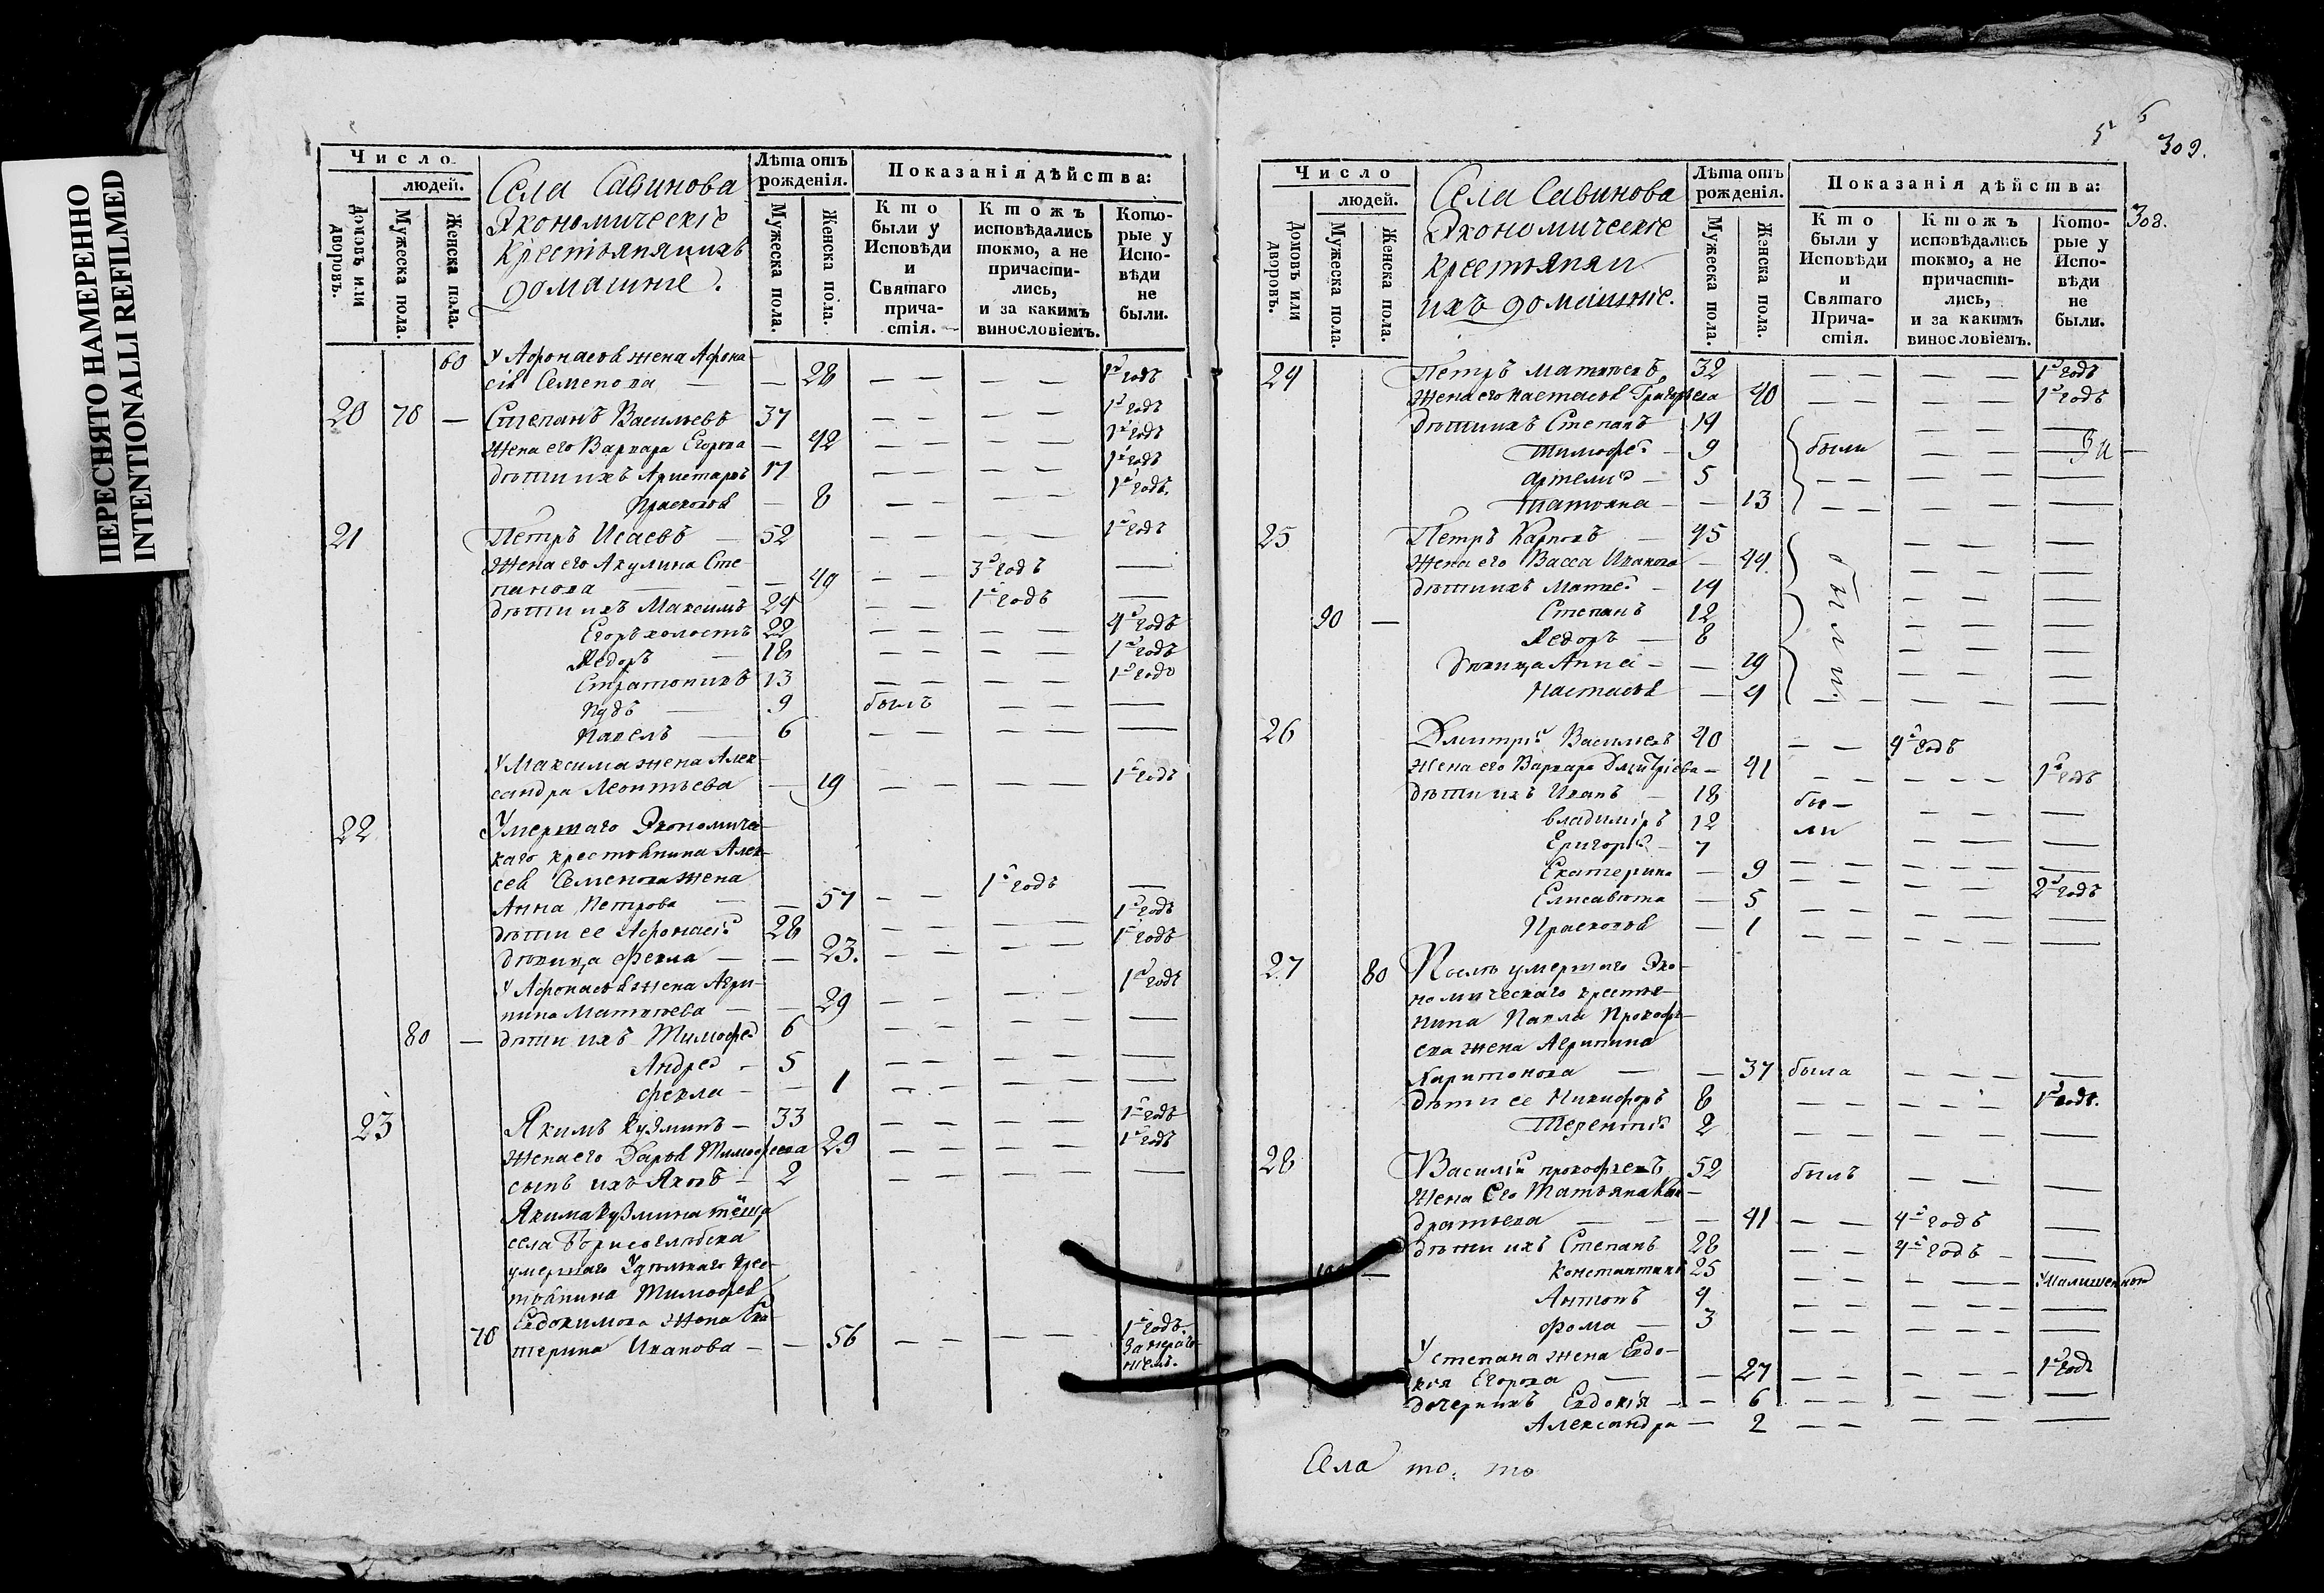 ПЕРЕСНЯТО НАМЕРЕННО
INTENTIONALLI REFILMED
Число
людей.
Домовъ или дворовъ.
Мужеска пола.
Женска пола.
Села Савинова
Экономическіе
крестьяня ихъ
домашніе.
Лѣта отъ рожденія.
Мужеска пола.
Женска пола.
Показанія дѣйства:
Кто были у Исповѣди и Святаго причастія.
Ктожъ исповѣдались токмо, а не причастились, и за какимъ винословіемъ.
Которые у Исповѣди не были.
60 У Афонасья жена Афона-
сія Семенова — — 28 — — — — 1й годъ
20 70 — Степанъ Васильевъ 37 — — — — 1й годъ
Жена его Варвара Егорова — 42 — — — — 1й годъ
дѣти ихъ Аристархъ 17 — — — — 1й годъ
Прасковья — 8 — — — — 1й годъ.
21 Петръ Исаевъ — 52 — — — — 1й годъ
Жена его Акулина Сте-
панова — — 49 — — 3й годъ —
дѣти ихъ Максимъ 24 — — 1й годъ —
Егоръ холостъ 22 — — — — 4й годъ
Ѳедоръ — 18 — — — — 1й годъ
Стратоникъ 13 — — — — 1й годъ
Пудъ — 9 былъ — — —
Павелъ — 6 — — — — —
У Максима жена Алек-
сандра Леонтьева — 19 — — — — 1й годъ
22 Умершаго Экономичес-
каго крестьянина Алек-
сея Семенова жена
Анна Петрова — — 57 — — 1й годъ —
дѣти ее Афонасій 28 — — — — 1й годъ
дѣвица Фекла — — 23. — — — — 1й годъ
У Афонасья жена Агри-
пина Матвѣева — — 29 — — — — 1й годъ
80 — дѣти ихъ Тимофей 6 — — — — —
Андрей — 5 — — — — —
Фекла — — 1 — — — — —
23 Якимъ Кузминъ — 33 — — — — 1й годъ
Жена его Дарья Тимофеева 29 — — — — 1й годъ
сынъ ихъ Яковъ — 2 — — — — —
Якима Кузмина тёща
села Борисоглѣбска
умершаго Удѣльнаго крес-
тьянина Тимофея
Евдокимова жена Ека-
70 терина Иванова — — 56 — — — — 1й годъ.
5 6
309.
308.
Число
людей.
Домовъ или дворовъ.
Мужеска пола.
Женска пола.
Села Савинова
Экономическіе
крестьяня и
ихъ домашніе.
Лѣта отъ рожденія.
Мужеска пола.
Женска пола.
Показанія дѣйства:
Кто были у Исповѣди и Святаго Причастія.
Ктожъ исповѣдались токмо, а не причастились, и за какимъ винословіемъ.
Которые у Исповѣди не были.
24 Петръ Матвѣевъ 32 — — — — 1й годъ
Жена его Настасья Григорьева 40 — — — — 1й годъ
дѣти ихъ Степанъ 14 — — —
Тимофей — 9 были — — —
Артемій — 5 — — — — —
Татьяна — — 13 — — — — —
25 Петръ Карповъ — 45 — — —
Жена его Васса Иванова — 44. — — —
дѣти ихъ Матвей — 14 были — — —
90 — Степанъ 12 — — —
Ѳедоръ — 8 — — —
дѣвица Анна — — 19 — — —
Настасья — 4 — — — — —
26 Дмитрій Васильевъ 40 — — 4й годъ
Жена его Варвара Дмитріева — 41 — — — — 1й годъ
дѣти ихъ Иванъ — 18 бы- — — —
Владиміръ 12 ли — — —
Григорій — 7 — — — — —
Екатерина — 9 — — — — 2й годъ
Елисавета — 5 — — — — —
Прасковья — 1 — — — — —
27 80 Послѣ умершаго Эко-
номическаго крестья-
нина Павла Прокофь-
ева жена Агрипина
Харитонова — — 37 была — — —
дѣти ее Никифоръ 8 — — — — 1й годъ.
Терентій 2 — — — — —
28 Василій Прокофьевъ 52 былъ — — —
Жена Его Татьяна Кон-
дратьева — — 41 — — 4й годъ —
дѣти ихъ Степанъ 28 — — 4й годъ —
100 — Константинъ 25 — — — — Умалишенной
Антонъ 9 — — — — —
Фома — 3 — — — — —
У степана жена Евдо-
кія Егорова — — 27 — — — — 1й годъ
дочери ихъ Евдокія — 6 — — — — —
Александра — 2 — — — — —
Села то. то